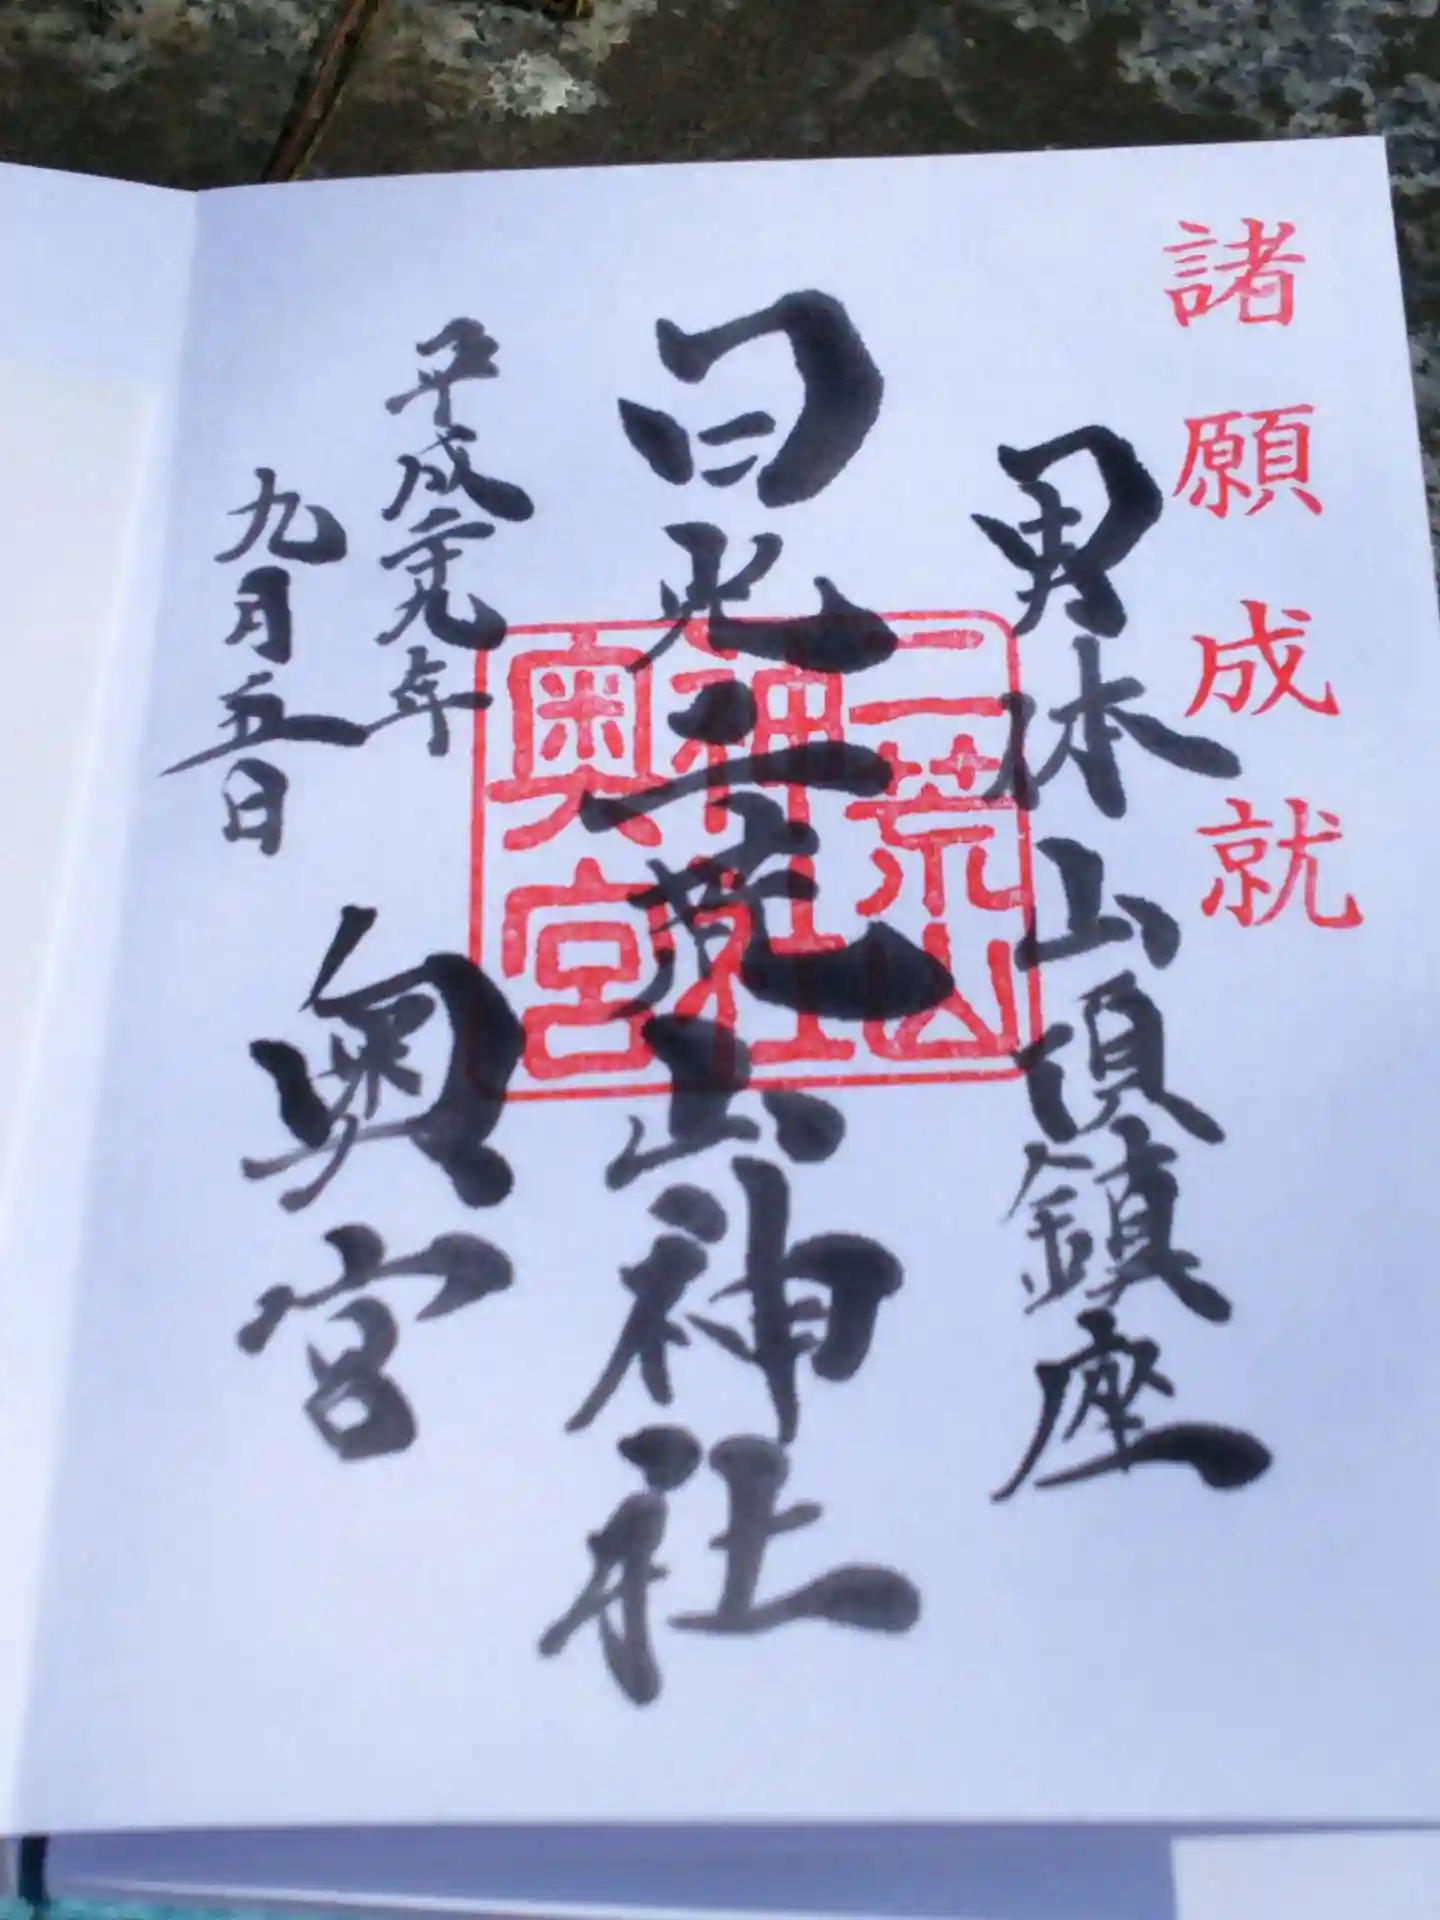 諸願成就
男体山頂鎮座
日光二荒山神社
奥宮
平成二十九年
九月五日
二荒山
神社
奥宮